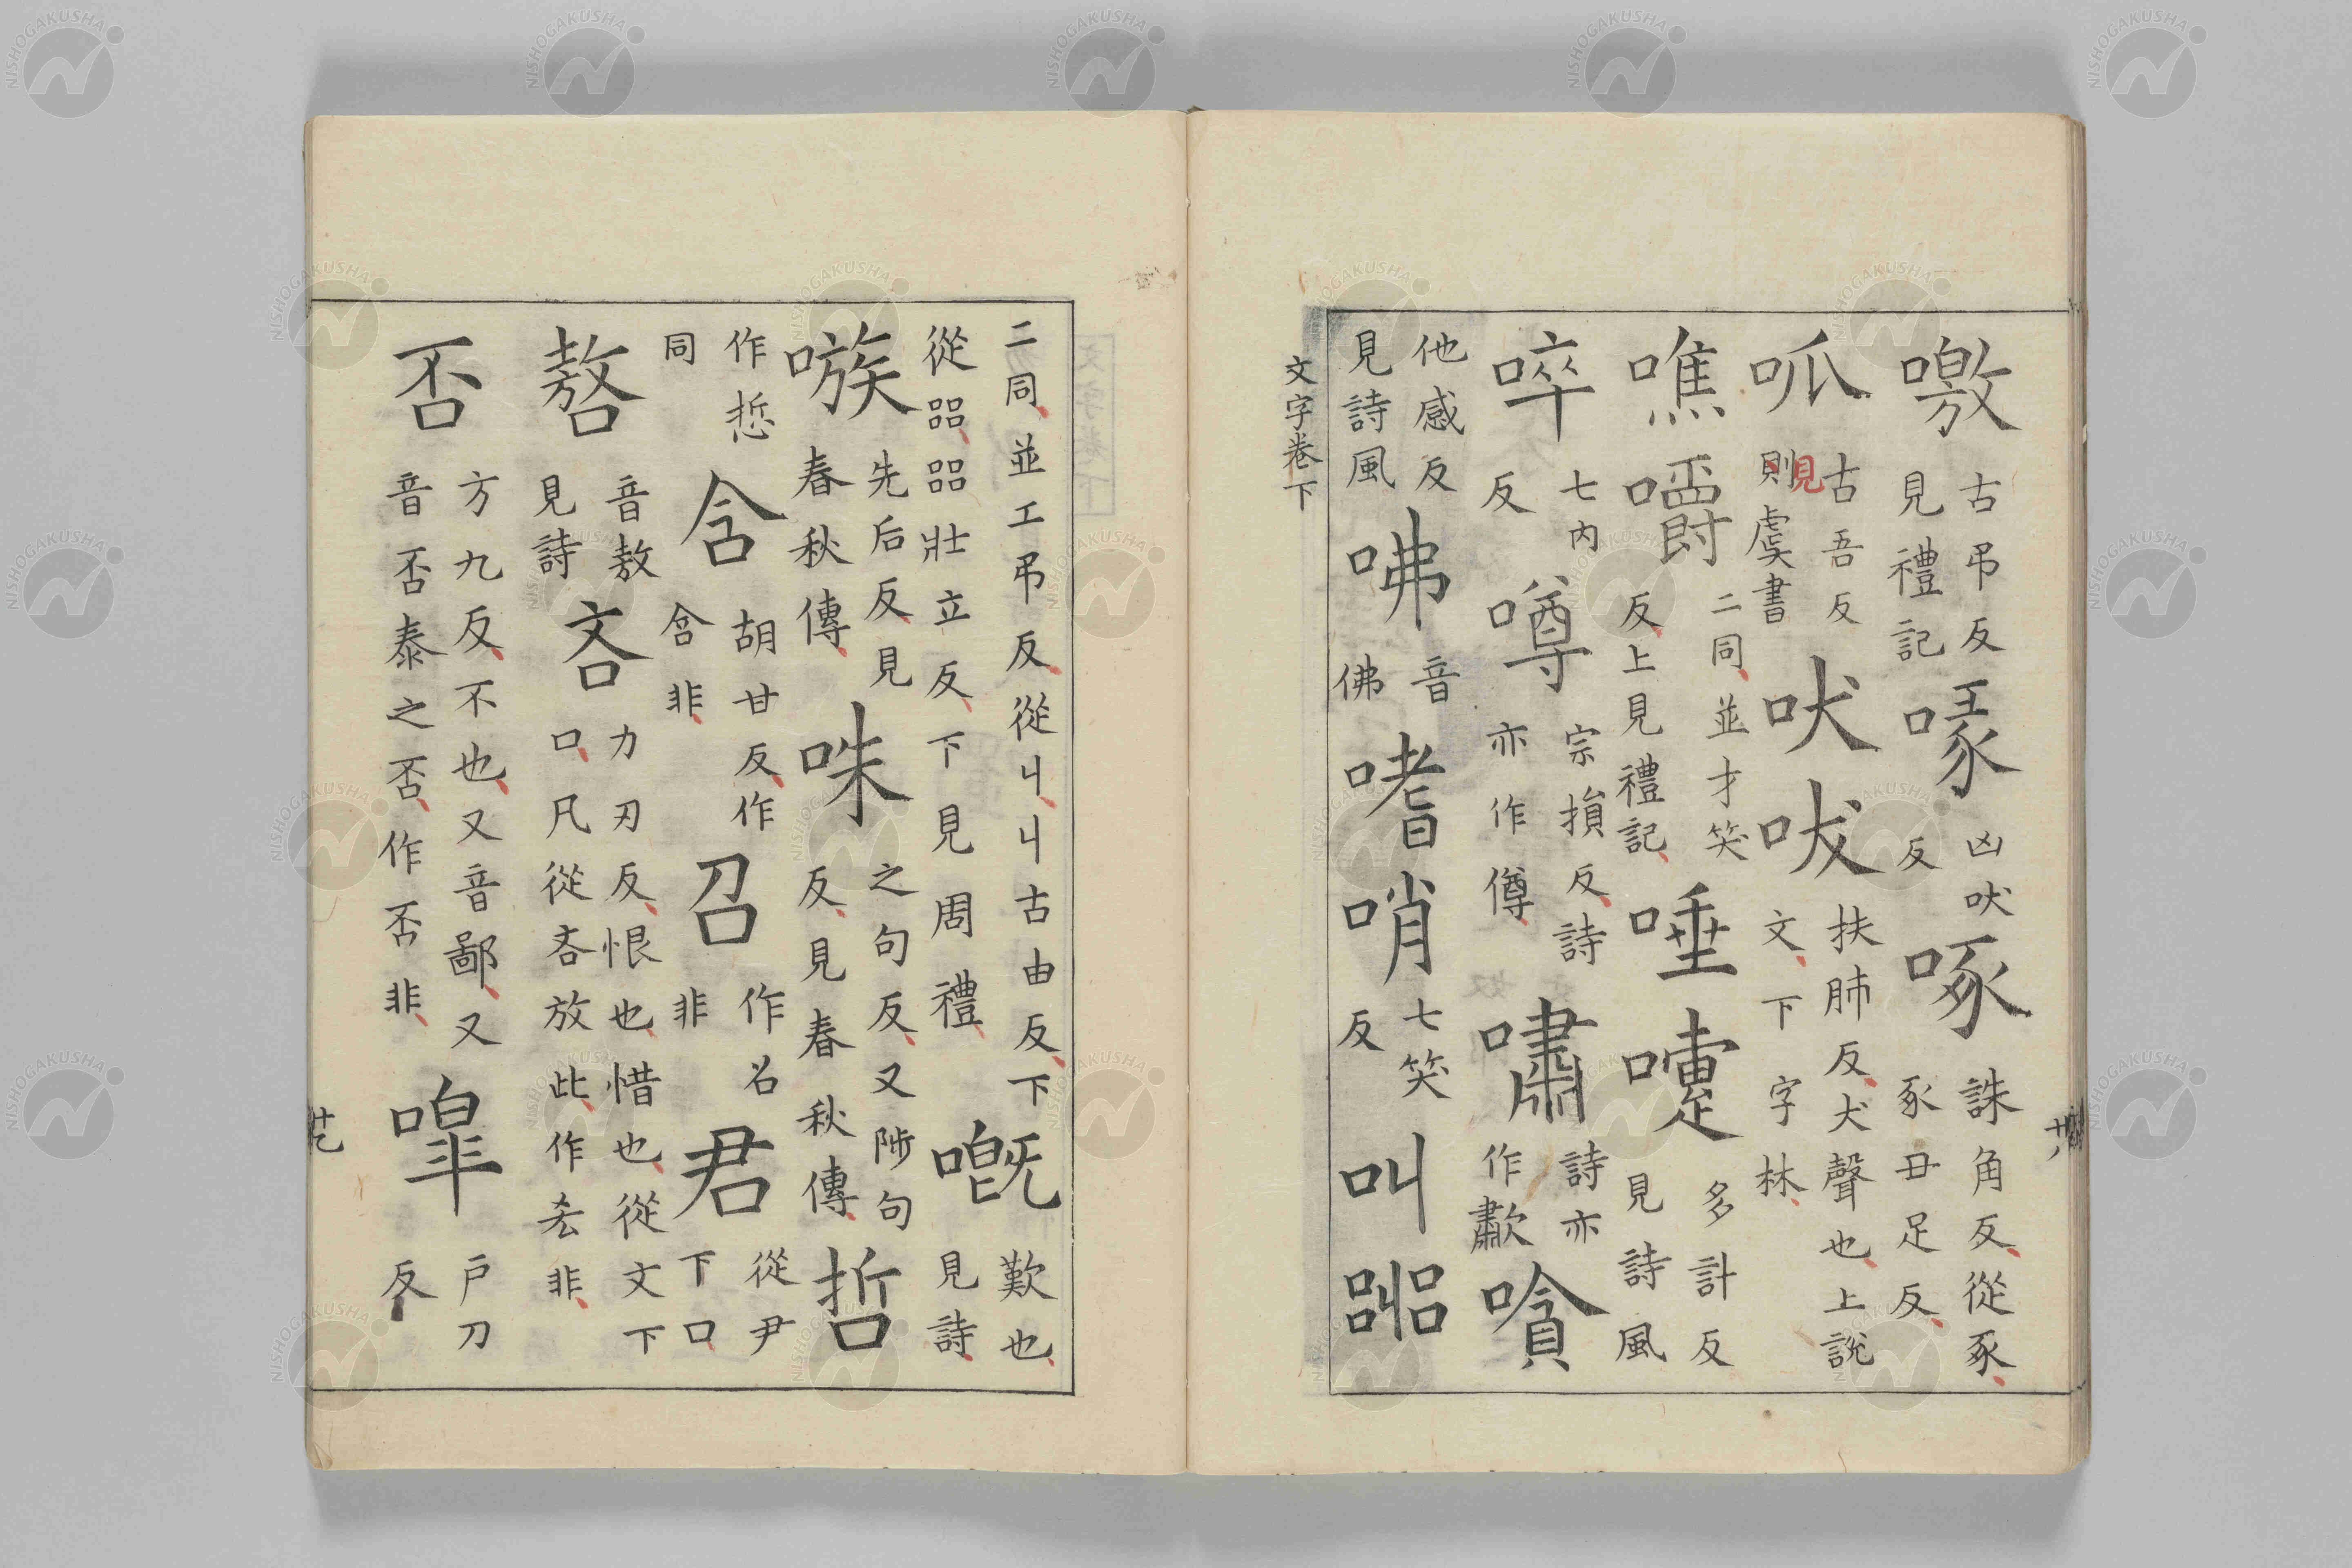 噭 古吊反見禮記 㖇 凶吠反 啄 誅角反從豖豖丑足反
呱 古吾反見則虞書 吠 㕹 扶肺反犬聲也上説文下字林
噍 嚼 二同並才笑反上見禮記 唾 嚏 多計反見詩風
啐 七内反 噂 宗損反詩亦作僔 嘯 詩亦作歗 嗿
他感反見詩風 咈 音佛 嗜 哨 七笑反 叫 嘂
文字卷下
二同並工吊反從丩丩古由反下
從㗊㗊壯立反下見周禮 嘅 歎也見詩
嗾 先后反見春秋傳 咮 之句反又陟句反見春秋傳 哲
作悊同 含 胡甘反作含非 召 作召非 君 從尹下口
嗸 音敖見詩 吝 力刃反恨也惜也從文下口凡從吝放此作㕁非
否 方九反不也又音鄙又音否泰之否作否非 嘷 戸刀反